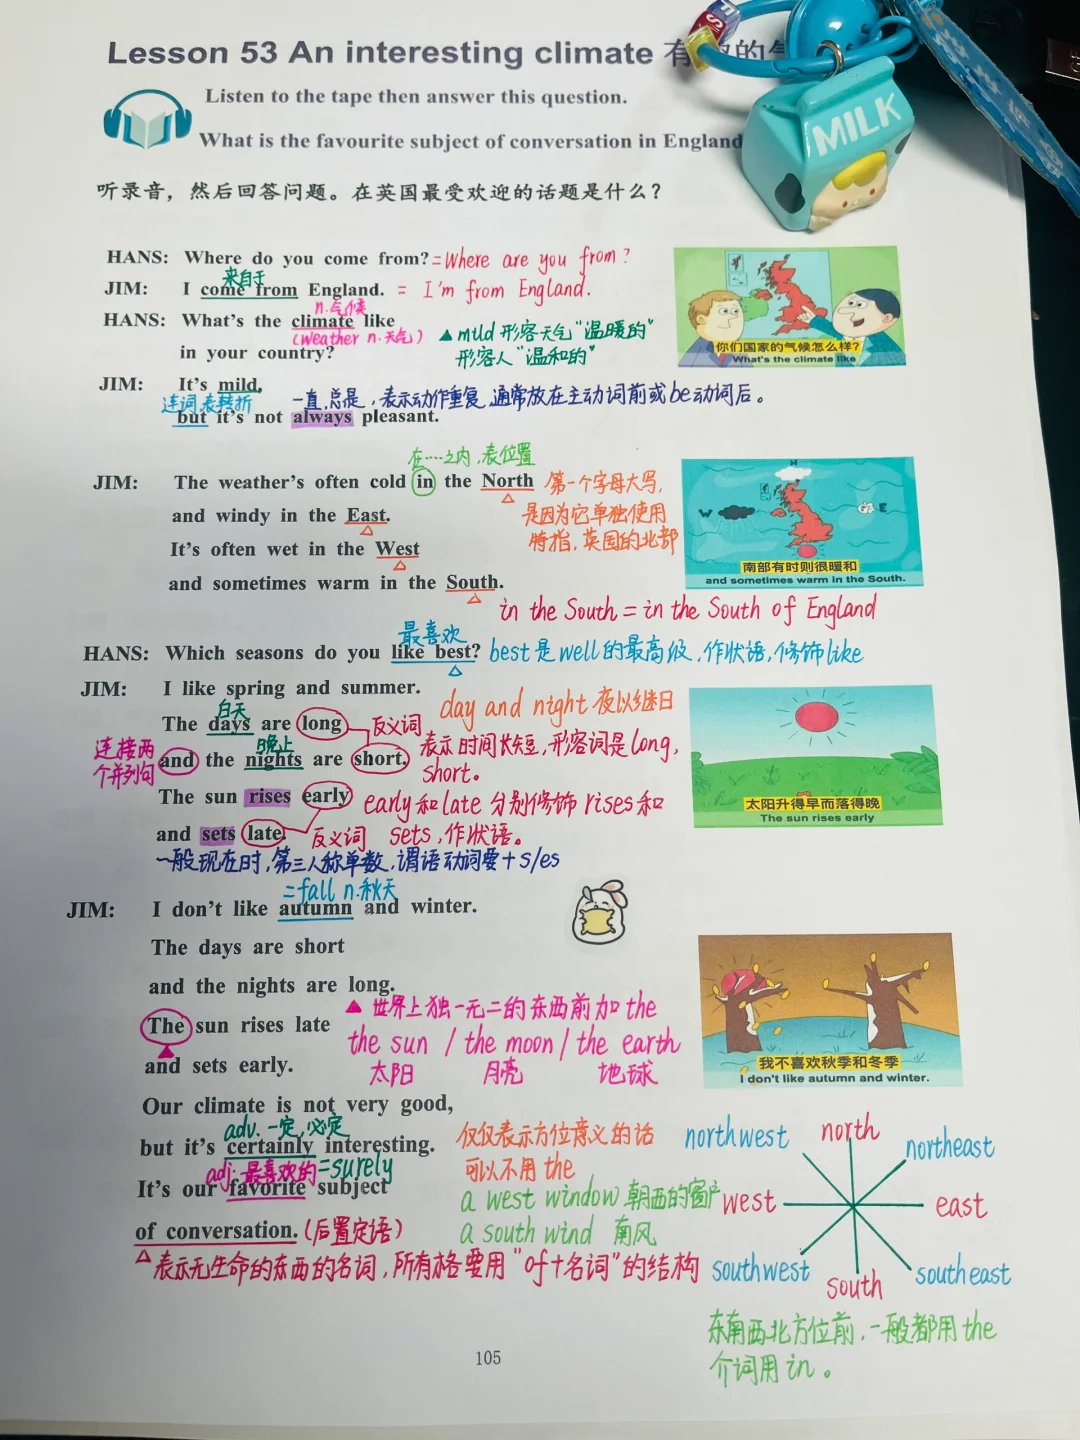 Lesson 53 An interesting climate 有
的
MILK
Listen to the tape then answer this question.
What is the favourite subject of conversation in England
听录音，然后回答问题。在英国最受欢迎的话题是什么？
HANS: Where do you come from? = Where are you from?
来自于
JIM: I come from England. = I'm from England.
n.气候
HANS: What's the climate like
(weather n.天气)
▲ mild 形容天气"温暖的"
in your country?
形容人"温和的"
你们国家的气候怎么样?
What's the climate like
JIM: It's mild,
连词,表转折
一直,总是,表示动作重复,通常放在主动词前或be动词后。
but it's not always pleasant.
在……之内,表位置
JIM: The weather's often cold in the North
第一个字母大写,
and windy in the East.
是因为它单独使用
It's often wet in the West
特指,英国的北部
and sometimes warm in the South.
N
W
E
南部有时则很暖和
and sometimes warm in the South.
in the South = in the South of England
最喜欢
HANS: Which seasons do you like best? best是well的最高级,作状语,修饰like
JIM: I like spring and summer.
day and night 夜以继日
白天
The days are long
反义词
连接两
个并列句
晚上
and the nights are short.
表示时间长短,形容词是long,
short。
The sun rises early
early和late分别修饰rises和
and sets late.
反义词
sets,作状语。
一般现在时,第三人称单数,谓语动词要+s/es
太阳升得早而落得晚
The sun rises early
=fall n.秋天
JIM: I don't like autumn and winter.
The days are short
and the nights are long.
▲ 世界上独一无二的东西前加the
The sun rises late
the sun / the moon / the earth
and sets early.
太阳 月亮 地球
我不喜欢秋季和冬季
I don't like autumn and winter.
Our climate is not very good,
adv. 一定,必定
but it's certainly interesting.
=surely
adj.最喜欢的
It's our favorite subject
of conversation. (后置定语)
表示无生命的东西的名词,所有格要用"of+名词"的结构
仅仅表示方位意义的话
可以不用the
a west window 朝西的窗户
a south wind 南风
northwest north northeast
west east
southwest south southeast
东南西北方位前,一般都用the
介词用in。
105